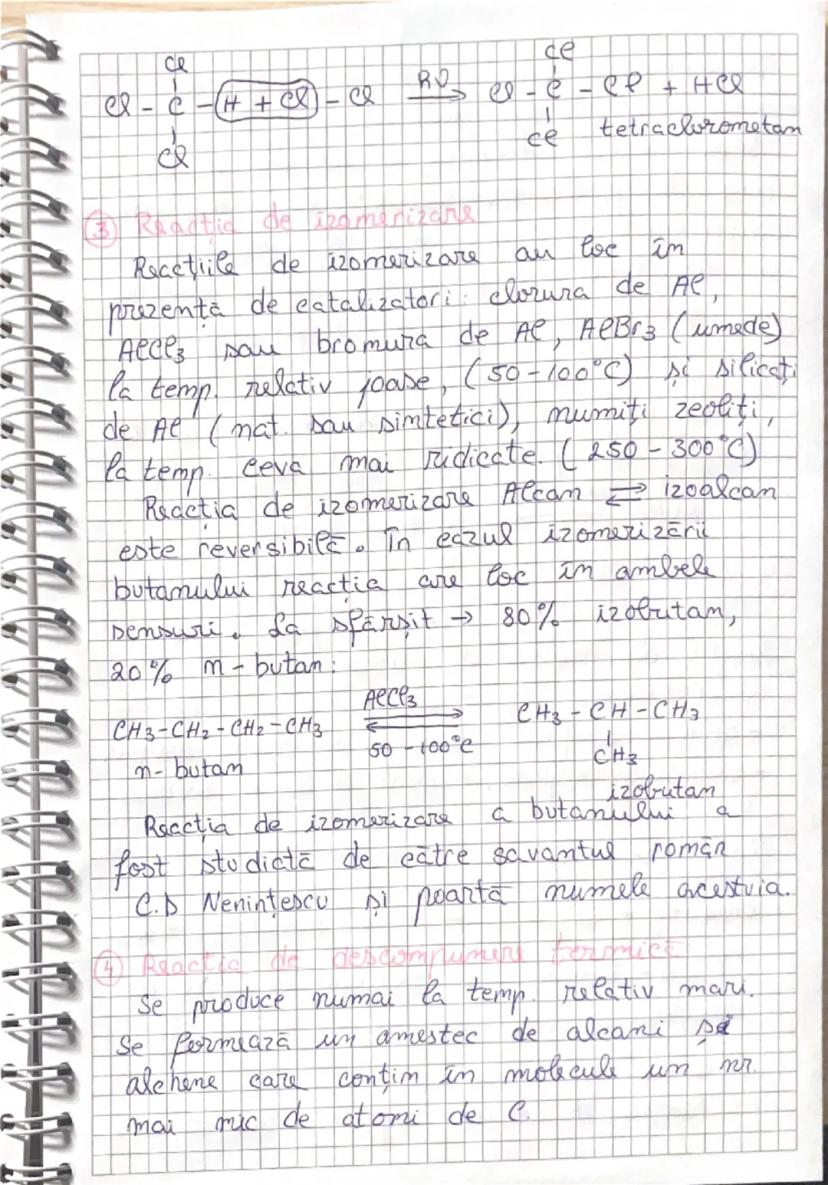 Cl Cl
Cl - C - H + Cl - Cl RV → Cl - C - Cl + HCl
Cl Cl tetraclorometan
③ Reacția de izomerizare
Reacțiile de izomerizare au loc în
prezență de catalizatori: clorura de Al,
AlCl3 sau bromura de Al, AlBr3 (umede)
la temp. relativ joase, (50-100°C) și silicați
de Al (nat. sau sintetici), numiți zeoliți,
la temp. ceva mai ridicate. (250-300°C)
Reacția de izomerizare Alcan ⇄ izoalcan
este reversibilă. În cazul izomerizării
butanului reacția are loc în ambele
sensuri. La sfârșit → 80% izobutan,
20% n-butan:
CH3-CH2-CH2-CH3 AlCl3 ⇄ 50-100°C CH3-CH-CH3
CH3
n-butan izobutan
Reacția de izomerizare a butanului a
fost studiată de către savantul român
C.D Nenințescu și poartă numele acestuia.
④ Reacția de descompunere termică
Se produce numai la temp. relativ mari.
Se formează un amestec de alcani și
alchene care conțin în molecule un nr.
mai mic de atomi de C.